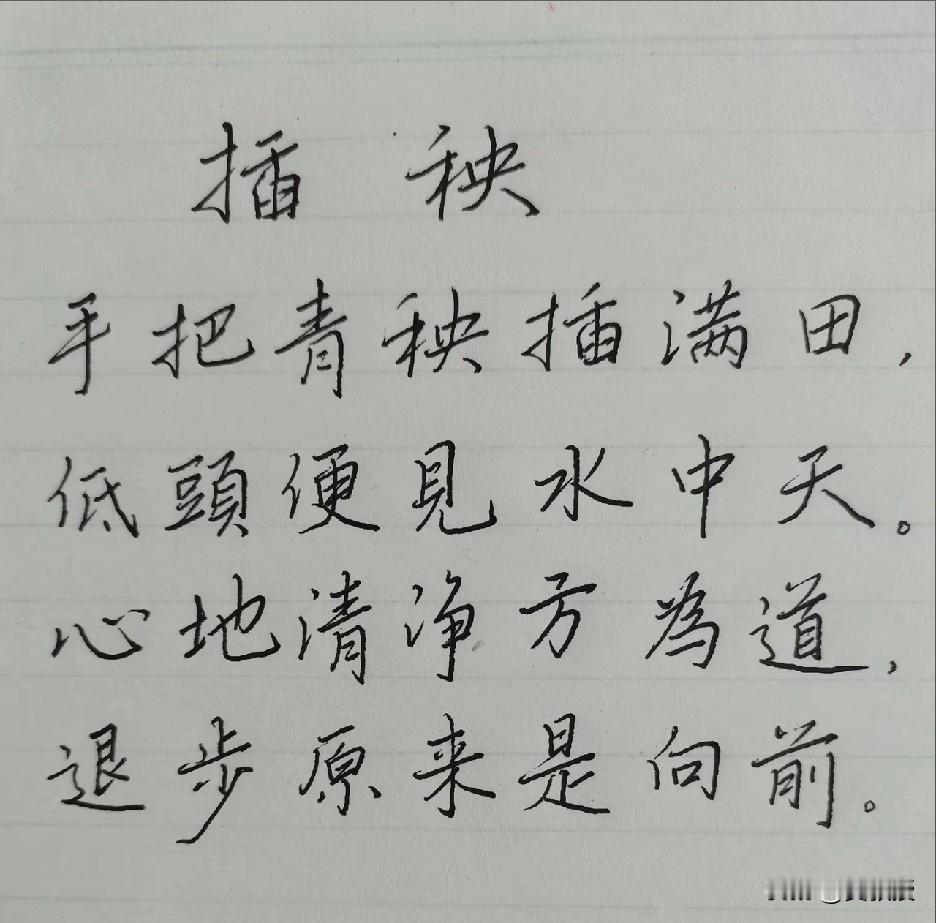 插秧
手把青秧插满田,
低頭便見水中天。
心地清净方為道,
退步原来是向前。